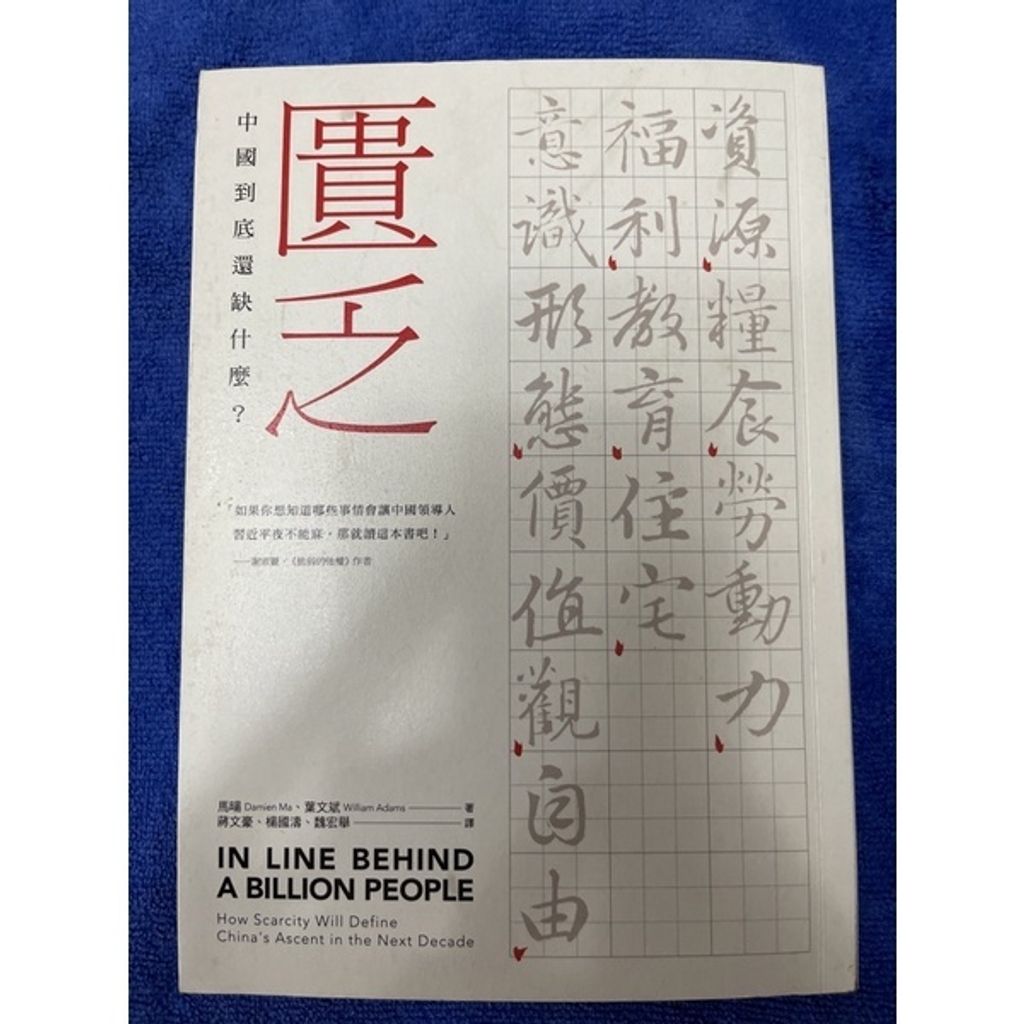 匱乏
中國到底還缺什麼？
資源糧食勞動力
福利教育住宅
意識形態價值觀自由
「如果你想知道哪些事情會讓中國領導人
習近平夜不能寐，那就讀這本書吧！」
——謝淑麗，《脆弱的強權》作者
馬旸 Damien Ma、葉文斌 William Adams 著
蔣文豪、楊國濤、魏宏舉 譯
IN LINE BEHIND
A BILLION PEOPLE
How Scarcity Will Define
China's Ascent in the Next Decade